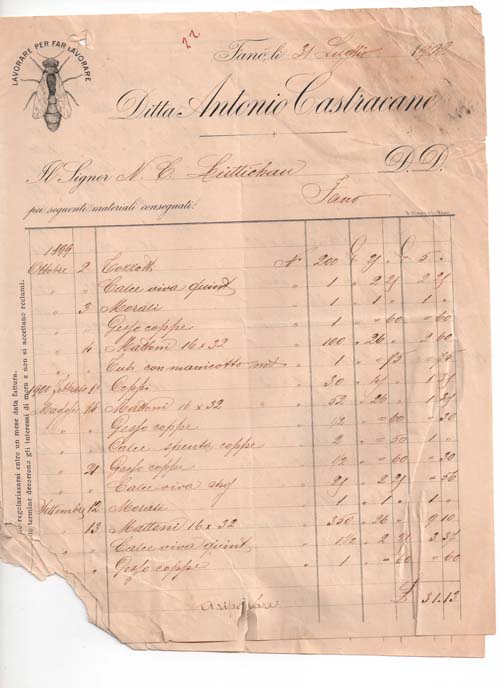 LAVORARE PER FAR LAVORARE
22
Fano, li 31 Luglio 1903
Ditta Antonio Castracane
Il Signor N. C. Lüttichau D. D.
Fano
per seguenti materiali consegnati:
1899
Ottobre 2 Cozzotti N° 200 25 5
" " Calce viva quint " 1 2 25 2 25
" 3 Morali " 1 1 1
" Gesso coppe " 1 = 60 = 60
" 4 Mattoni 16 x 32 " 100 26 2 60
" " Tub. con manicotto mt 1 = 75 = 75
1900 Febbraio 1° Coppi " 30 45 1 35
Maggio 14 Mattoni 16 x 32 " 52 26 1 35
" " Gesso coppe 1/2 = 60 = 30
" " Calce spenta coppe " 2 = 50 1
" 21 Gesso coppe " 1/2 = 60 = 30
" " Calce viva Kg " 25 2 25 = 56
Settembre 12 Morali " 1 1 1
" 13 Mattoni 16 x 32 " 350 26 9 10
" Calce viva quint " 1 1/2 2 25 3 37
" Gesso coppe " 1 = 60 = 60
£ 31.13
si regolarizzarsi entro un mese data fattura.
termine decorrono gli interessi di mora e non si accettano reclami.